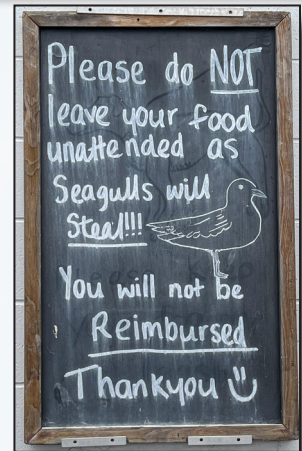 Please do NOT
leave your food
unattended as
Seagulls will
Steal!!!
You will not be
Reimbursed
Thankyou